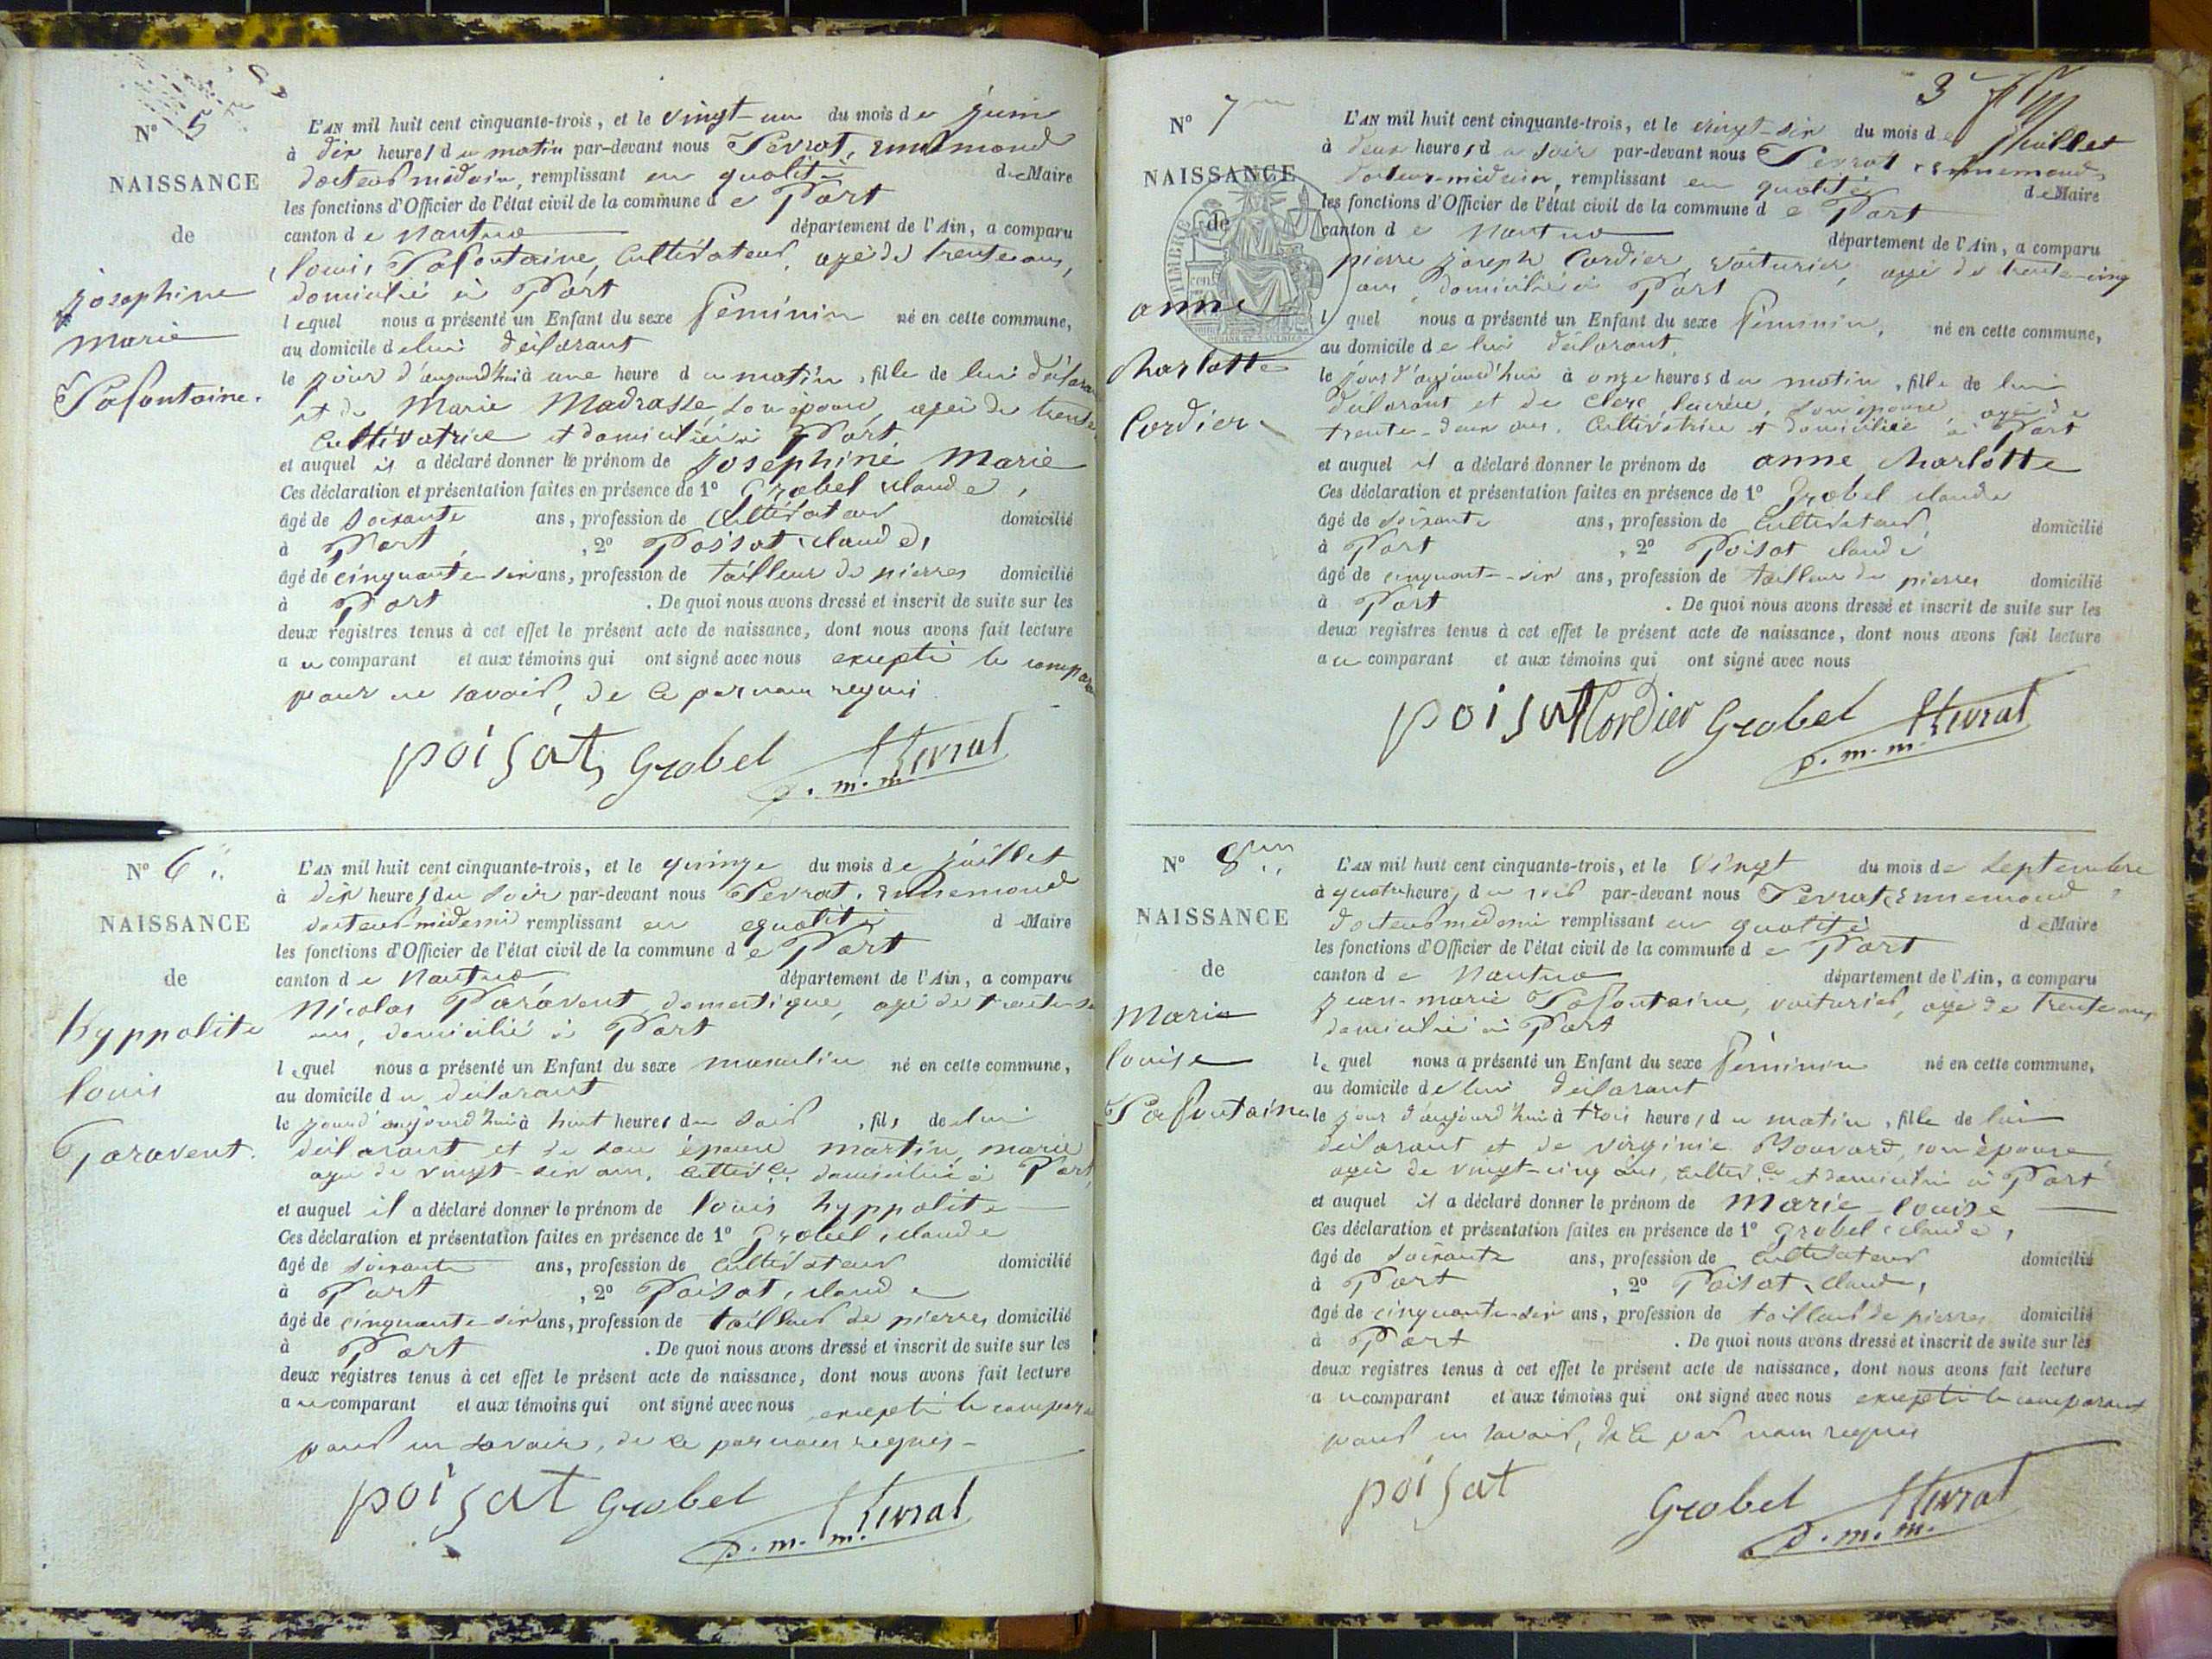 N° 5
NAISSANCE
de
josephine
marie
Lafontaine.
L'AN mil huit cent cinquante-trois, et le vingt-un du mois de juin
à dix heures du matin par-devant nous Pevrat, Ennemond
docteur médecin, remplissant en qualité de Maire
les fonctions d'Officier de l'état civil de la commune de Port
canton de Nantua département de l'Ain, a comparu
louis Lafontaine, Cultivateur, agé de trente ans,
domicilié à Port
lequel nous a présenté un Enfant du sexe féminin né en cette commune,
au domicile de lui déclarant
le jour d'aujourd'hui à une heure du matin, fille de lui
et de Marie Madrasse son épouse, agée de trente
Cultivatrice et domiciliée à Port
et auquel il a déclaré donner le prénom de Josephine Marie
Ces déclaration et présentation faites en présence de 1° Grobel claude,
âgé de soixante ans, profession de Cultivateur domicilié
à Port, 2° Poisat, claude,
âgé de cinquante-six ans, profession de tailleur de pierres domicilié
à Port. De quoi nous avons dressé et inscrit de suite sur les
deux registres tenus à cet effet le présent acte de naissance, dont nous avons fait lecture
au comparant et aux témoins qui ont signé avec nous excepté le
pour ne savoir, de ce par nous requis
poisat Grobel Pevrat
d. m. m.
N° 6
NAISSANCE
de
hyppolite
louis
Paravent.
L'AN mil huit cent cinquante-trois, et le quinze du mois de juillet
à dix heures du soir par-devant nous Pevrat, Ennemond
docteur médecin remplissant en qualité de Maire
les fonctions d'Officier de l'état civil de la commune de Port
canton de Nantua département de l'Ain, a comparu
Nicolas Paravent, domestique, agé de
ans, domicilié à Port
lequel nous a présenté un Enfant du sexe masculin né en cette commune,
au domicile du déclarant
le jour d'aujourd'hui à huit heures du soir, fils de lui
déclarant et de son épouse martin, marie
agée de vingt-six ans, domiciliée à Port
et auquel il a déclaré donner le prénom de louis hyppolite
Ces déclaration et présentation faites en présence de 1° Grobel, claude
âgé de soixante ans, profession de cultivateur domicilié
à Port, 2° Poisat, claude
âgé de cinquante-six ans, profession de tailleur de pierres domicilié
à Port. De quoi nous avons dressé et inscrit de suite sur les
deux registres tenus à cet effet le présent acte de naissance, dont nous avons fait lecture
au comparant et aux témoins qui ont signé avec nous excepté le
pour ne savoir, de ce par nous requis
poisat Grobel Pevrat
d. m. m.
3
N° 7
NAISSANCE
de
anne
charlotte
Cordier
L'AN mil huit cent cinquante-trois, et le vingt-six du mois de juillet
à deux heures du soir par-devant nous Pevrat, Ennemond
docteur-médecin, remplissant en qualité de Maire
les fonctions d'Officier de l'état civil de la commune de Port
canton de Nantua département de l'Ain, a comparu
pierre joseph Cordier, voiturier, agé de trente-cinq
ans, domicilié à Port
lequel nous a présenté un Enfant du sexe féminin, né en cette commune,
au domicile de lui déclarant,
le jour d'aujourd'hui à onze heures du matin, fille de lui
déclarant et de Clerc, lucrèce, son épouse, agée de
trente-deux ans, Cultivatrice et domiciliée à Port
et auquel il a déclaré donner le prénom de anne charlotte
Ces déclaration et présentation faites en présence de 1° Grobel claude
âgé de soixante ans, profession de cultivateur domicilié
à Port, 2° Poisat claude
âgé de cinquante-six ans, profession de tailleur de pierres domicilié
à Port. De quoi nous avons dressé et inscrit de suite sur les
deux registres tenus à cet effet le présent acte de naissance, dont nous avons fait lecture
au comparant et aux témoins qui ont signé avec nous
poisat Cordier Grobel Pevrat
d. m. m.
N° 8
NAISSANCE
de
Marie
louise
Lafontaine
L'AN mil huit cent cinquante-trois, et le vingt du mois de septembre
à quatre heures du soir par-devant nous Pevrat, Ennemond
docteur médecin remplissant en qualité de Maire
les fonctions d'Officier de l'état civil de la commune de Port
canton de Nantua département de l'Ain, a comparu
jean-marie Lafontaine, voiturier, agé de trente ans
domicilié à Port
lequel nous a présenté un Enfant du sexe féminin né en cette commune,
au domicile de lui déclarant
le jour d'aujourd'hui à trois heures du matin, fille de lui
déclarant et de virginie Bouvard, son épouse,
agée de vingt-cinq ans, et domiciliée à Port
et auquel il a déclaré donner le prénom de Marie-louise
Ces déclaration et présentation faites en présence de 1° grobel, claude,
âgé de soixante ans, profession de cultivateur domicilié
à Port, 2° Poisat, claude,
âgé de cinquante-six ans, profession de tailleur de pierres domicilié
à Port. De quoi nous avons dressé et inscrit de suite sur les
deux registres tenus à cet effet le présent acte de naissance, dont nous avons fait lecture
au comparant et aux témoins qui ont signé avec nous excepté le comparant
pour ne savoir, de ce par nous requis
poisat Grobel Pevrat
d. m. m.